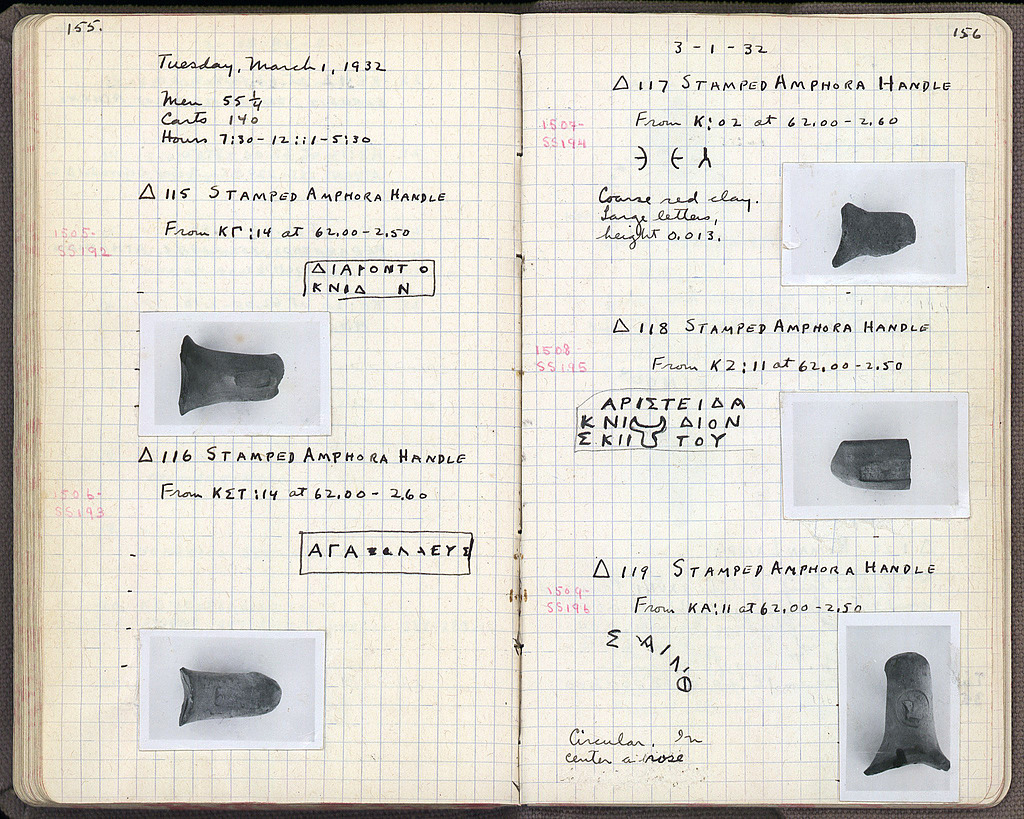 155.
Tuesday, March 1, 1932
Men 55 1/4
Carts 140
Hours 7:30-12::1-5:30
Δ 115 STAMPED AMPHORA HANDLE
From ΚΓ:14 at 62.00-2.50
1505-
SS192
ΔΙΑΡΟΝΤ Ο
ΚΝΙΔ Ν
Δ 116 STAMPED AMPHORA HANDLE
From ΚΣΤ:14 at 62.00-2.60
1506-
SS193
ΑΓΑ ΛΕΥΣ
156
3-1-32
Δ 117 STAMPED AMPHORA HANDLE
1507-
SS194
From Κ:02 at 62.00-2.60
Coarse red clay.
Large letters,
height 0.013.
Δ 118 STAMPED AMPHORA HANDLE
1508-
SS195
From ΚΖ:11 at 62.00-2.50
ΑΡΙΣΤΕΙΔΑ
ΚΝΙ ΔΙΟΝ
ΣΚΙΙ ΤΟΥ
Δ 119 STAMPED AMPHORA HANDLE
1509-
SS196
From ΚΑ:11 at 62.00-2.50
Circular. In
center a rose